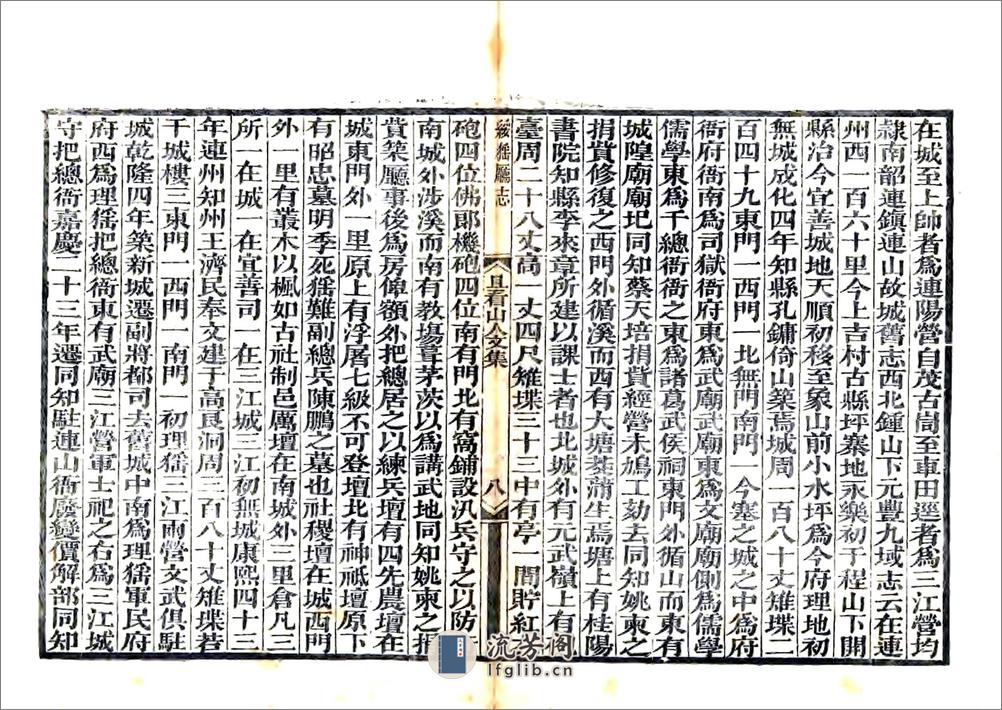 在城至上帥者爲連陽營自茂古崗至車田逕者爲三江營均
隸南韶連鎮連山故城舊志西北鍾山下元豐九域志云在連
州西一百六十里今上吉村古縣坪寨地永樂初于程山下開
縣治今宜善城地天順初移至象山前小水坪爲今府理地初
無城成化四年知縣孔鏞倚山築焉城周一百八十丈雉堞二
百四十九東門一西門一北無門南門一今塞之城之中爲府
衙府衙南爲司獄衙府東爲武廟武廟東爲文廟廟側爲儒學
儒學東爲千總衙衙之東爲諸葛武侯祠東門外循山而東有
城隍廟廟圮同知蔡天培捐貲經營未鳩工劾去同知姚柬之
捐貲修復之西門外循溪而西有大塘荃蒲生焉塘上有桂陽
書院知縣李來章所建以課士者也北城外有元武嶺上有
臺周二十八丈高一丈四尺雉堞三十三中有亭一間貯紅
綏猺廳志
且看山人文集
八
砲四位佛郎機砲四位南有門北有窩鋪設汛兵守之以防
南城外涉溪而南有教場葺茅茨以爲講武地同知姚柬之捐
貲築廳事後爲房俾額外把總居之以練兵壇有四先農壇在
城東門外一里原上有浮屠七級不可登壇北有神祇壇原下
有昭忠墓明季死猺難副總兵陳鵬之墓也社稷壇在城西門
外一里有叢木以楓如古社制邑厲壇在南城外三里倉凡三
所一在城一在宜善司一在三江城三江初無城康熙四十三
年連州知州王濟民奉文建于高良洞周三百八十丈雉堞若
干城樓三東門一西門一南門一初理猺三江兩營文武俱駐
城乾隆四年築新城遷副將都司去舊城中南爲理猺軍民府
府西爲理猺把總衙東有武廟三江營軍士祀之右爲三江城
守把總衙嘉慶二十三年遷同知駐連山衙廢變價解部同知
流芳阁
lfglib.cn